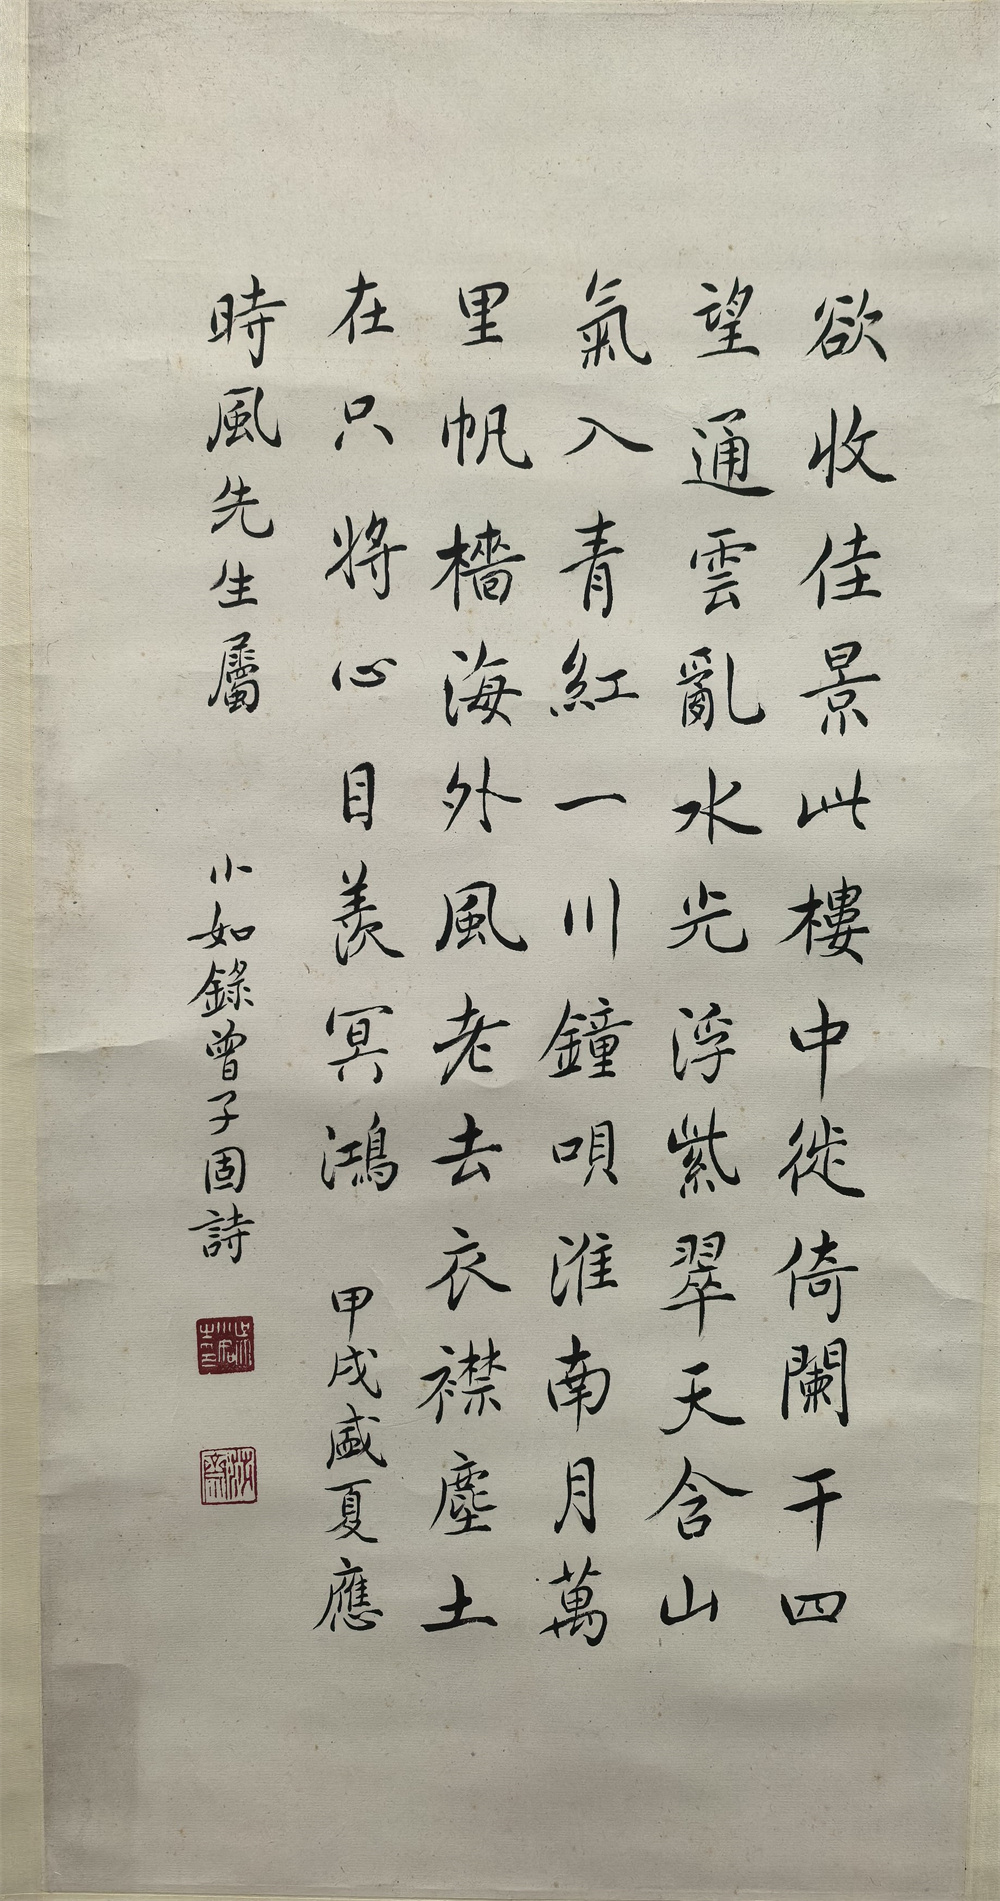 欲收佳景此樓中徙倚闌干四
望通雲亂水光浮紫翠天含山
氣入青紅一川鐘唄淮南月萬
里帆檣海外風老去衣襟塵土
在只將心目羨冥鴻 甲戌盛夏應
時風先生屬 小如錄曾子固詩
吳小如
莎齋